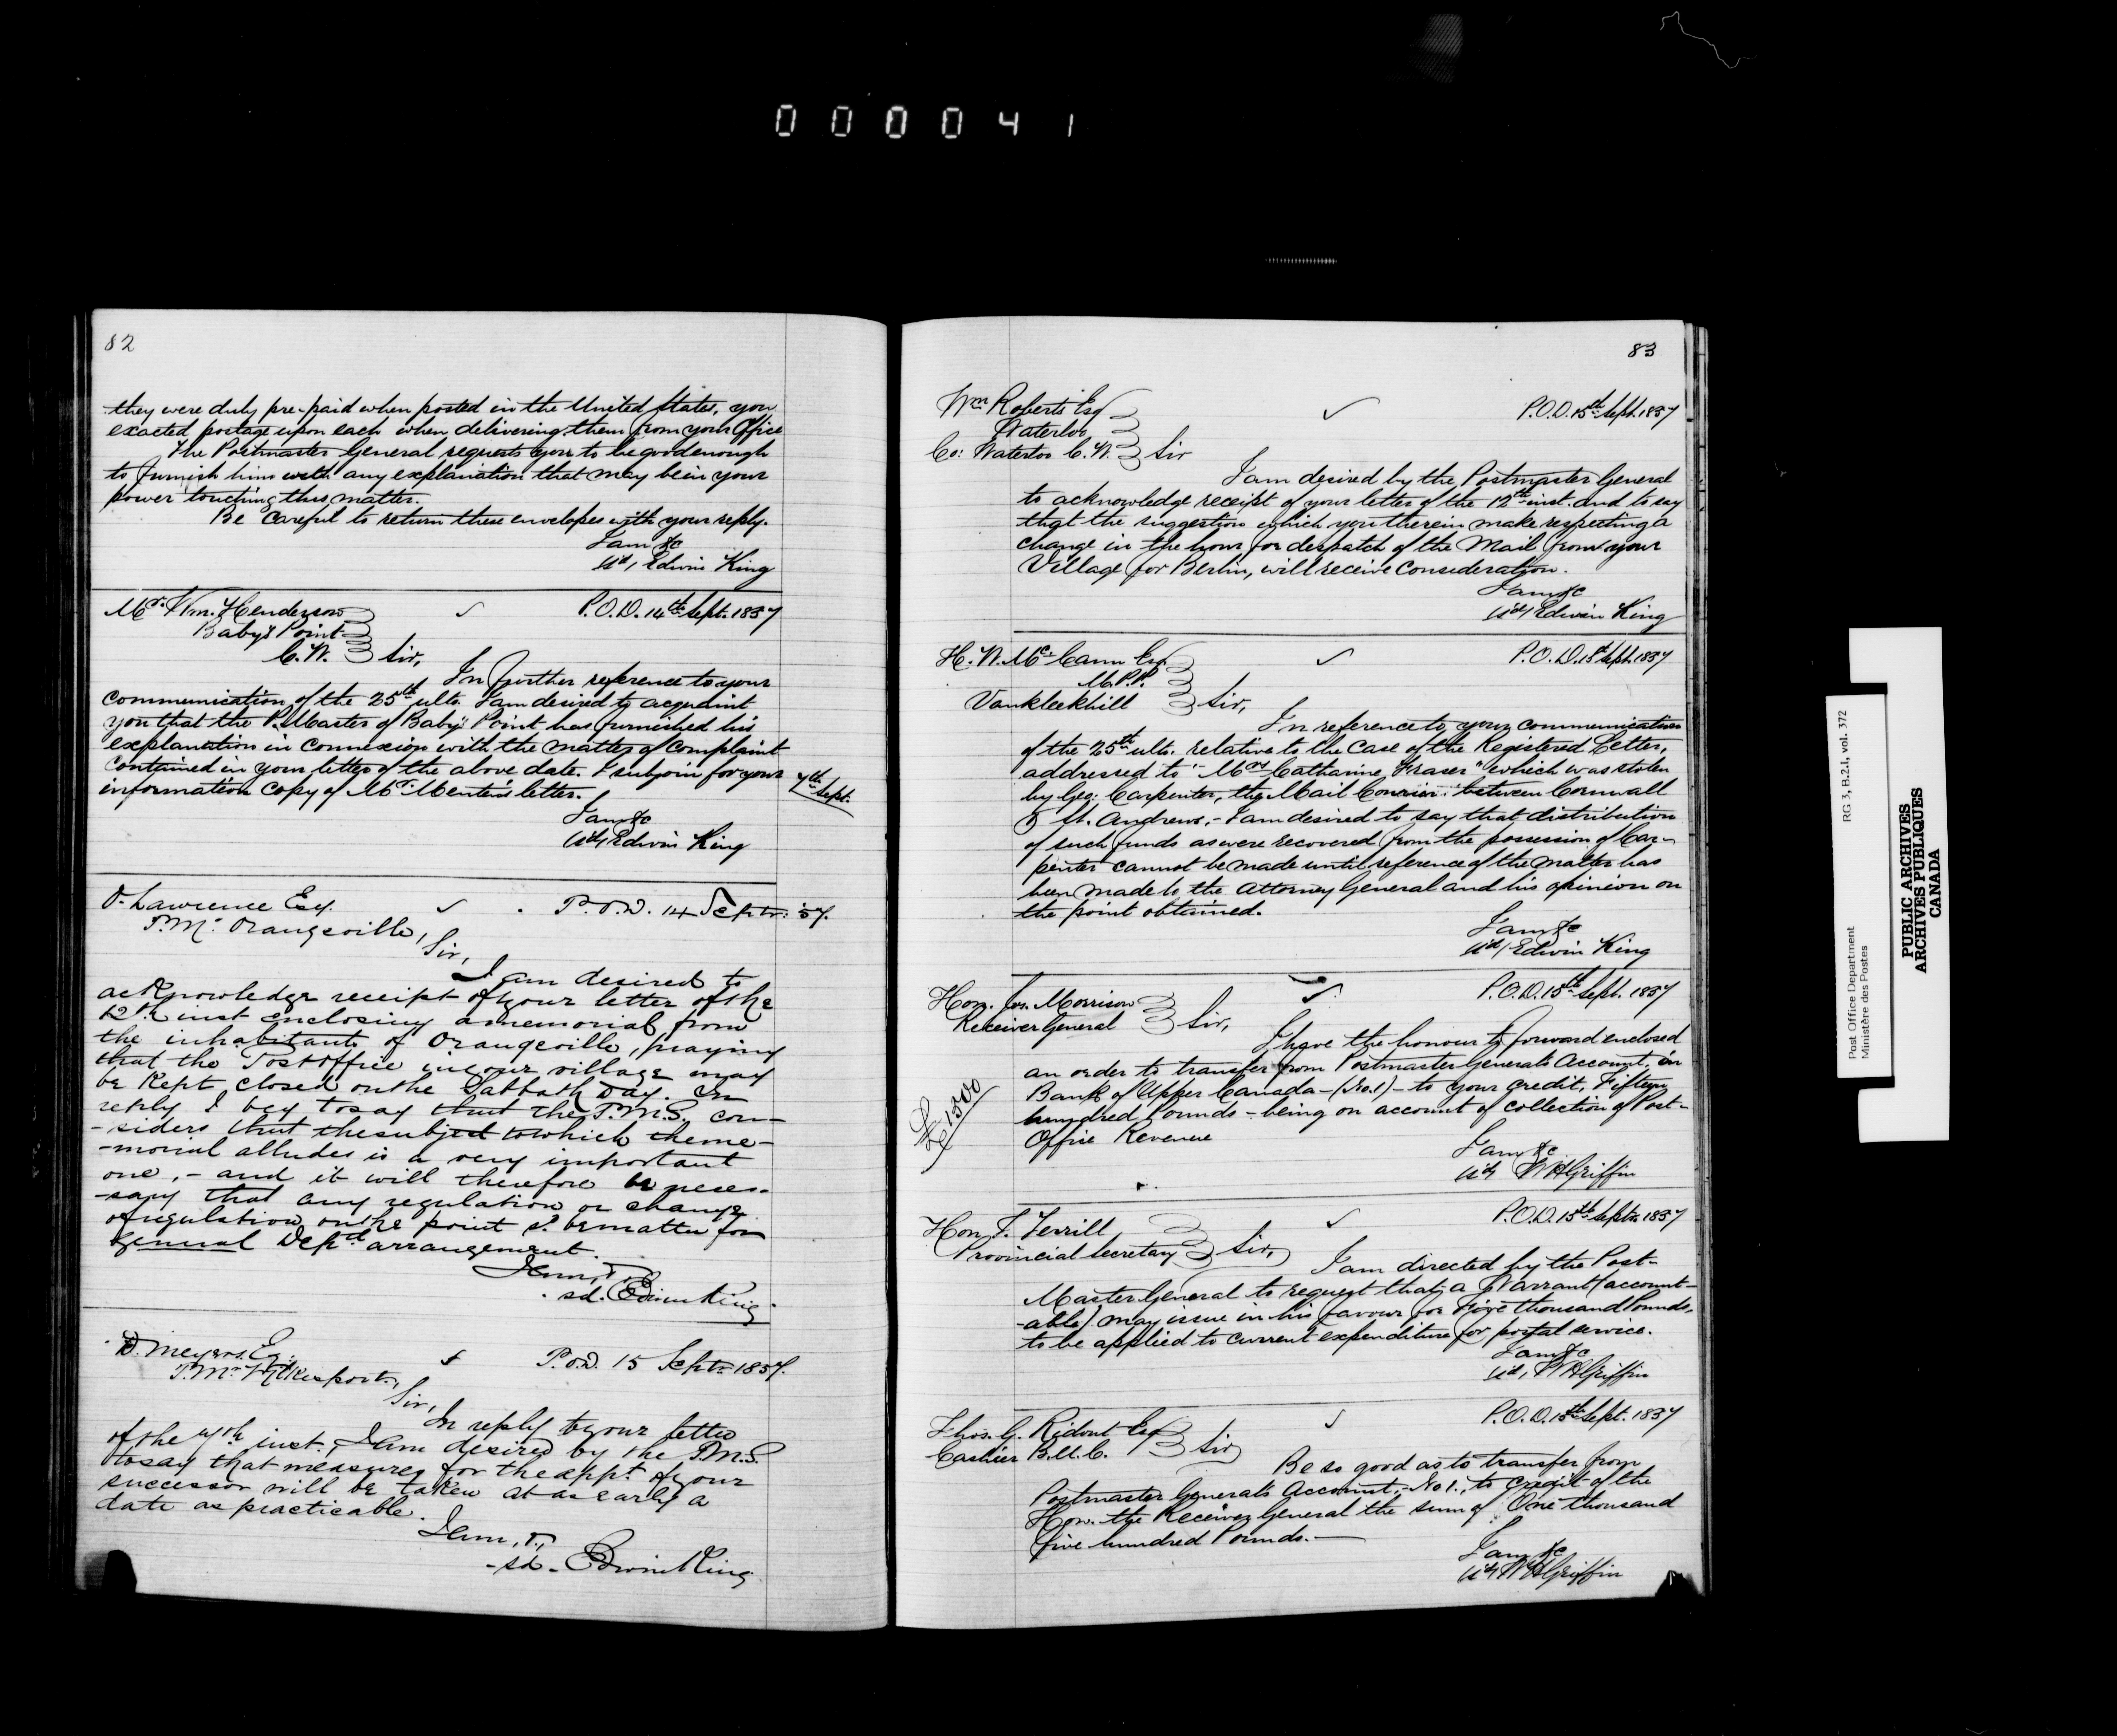 0 0 0 0 4 1
82
they were duly pre-paid when posted in the United States, you
exacted postage upon each when delivering them from your Office
The Postmaster General requests you to be good enough
to furnish him with any explanation that may be in your
power touching this matter.
Be careful to return these envelopes with your reply.
I am &c
sd/ Edwin King
Mr. Wm. Henderson
P.O.D. 14th Sept. 1857
Baby's Point
C.W. Sir,
In further reference to your
communication of the 25th ulto. I am desired to acquaint
you that the P. Master of Baby's Point has furnished his
explanation in connexion with the matter of complaint
contained in your letter of the above date. I subjoin for your
7th Sept.
information copy of Mr. letter.
I am &c
sd/ Edwin King
Lawrence Esq.
P.O.D. 14 Septr. '57.
P.Mr. Orangeville,
Sir,
I am desired to
acknowledge receipt of your letter of the
12th inst enclosing a memorial from
the inhabitants of Orangeville, praying
that the Post Office in your village may
be kept closed on the Sabbath Day. In
reply I beg to say that the P.M.G. con-
-siders that the subject to which the me-
-morial alludes is a very important
one, - and it will therefore be neces-
-sary that any regulation or change
of regulation on the point sd. be matter for
general Deptl arrangement.
I am, &
sd. Edwin King
D. Meyers Eq.
P.O.D. 15 Septr 1857.
P.Mr Wilkesport,
Sir,
In reply to your letter
of the 7th inst. I am desired by the P.M.G.
to say that measures for the appt. of your
successor will be taken at as early a
date as practicable.
I am, &,
sd - Edwin King
83
Wm Roberts Esq
P.O.D. 15th Sept. 1857
Waterloo
Co: Waterloo C.W. Sir
I am desired by the Postmaster General
to acknowledge receipt of your letter of the 12th inst. and to say
that the suggestion which you therein make respecting a
change in the hour for despatch of the Mail from your
Village for Berlin, will receive consideration.
I am &c
sd/ Edwin King
H. W. McCann Esq.
P.O.D. 15th Sept. 1857
M.P.P.
Vankleekhill Sir,
In reference to your communication
of the 25th ulto. relative to the case of the Registered Letter,
addressed to "Mrs Catharine Fraser" which was stolen
by Geo: Carpenter, the Mail Courier between Cornwall
& St. Andrews, - I am desired to say that distribution
of such funds as were recovered from the possession of Car-
penter cannot be made until reference of the matter has
been made to the Attorney General and his opinion on
the point obtained.
I am &c
sd/ Edwin King
Hon. Jos. Morrison
P.O.D. 15th Sept. 1857
Receiver General Sir,
I have the honour to forward enclosed
an order to transfer from Postmaster Generals Account, in
Bank of Upper Canada - (No. 1) - to your credit, Fifteen
£1500
hundred Pounds - being on account of collection of Post-
Office Revenue
I am &c
sd/ W H Griffin
P.O.D. 15th Septr. 1857
Hon. T. Terrill
Provincial Secretary Sir,
I am directed by the Post-
Master General to request that a Warrant (account-
-able) may issue in his favour for Five thousand Pounds,
to be applied to current expenditure for postal service.
I am &c
sd/ W H Griffin
Thos. G. Ridout Esq
P.O.D. 15th Sept. 1857
Cashier B.U.C. Sir
Be so good as to transfer from
Postmaster Generals Account, - No 1., to credit of the
Hon. the Receiver General the sum of One thousand
five hundred Pounds. -
I am &c
sd/ W H Griffin
Post Office Department RG 3, B.2.1, vol. 372
Ministère des Postes
PUBLIC ARCHIVES
ARCHIVES PUBLIQUES
CANADA